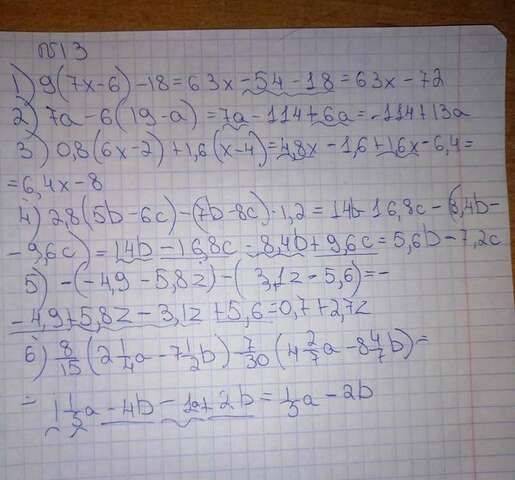 №13
1) 9(7x-6)-18=63x-54-18=63x-72
2) 7a-6(19-a)=7a-114+6a=-114+13a
3) 0,8(6x-2)+1,6(x-4)=4,8x-1,6+1,6x-6,4=
=6,4x-8
4) 2,8(5b-6c)-(7b-8c)·1,2=14b-16,8c-(8,4b-
-9,6c)=14b-16,8c-8,4b+9,6c=5,6b-7,2c
5) -(-4,9-5,8z)-(3,1z-5,6)=-
-4,9+5,8z-3,1z+5,6=0,7+2,7z
6) 8/15(2 1/4a-7 1/2b)-7/30(4 2/7a-8 4/7b)=
=1 1/5a-4b-1a+2b=1/5a-2b